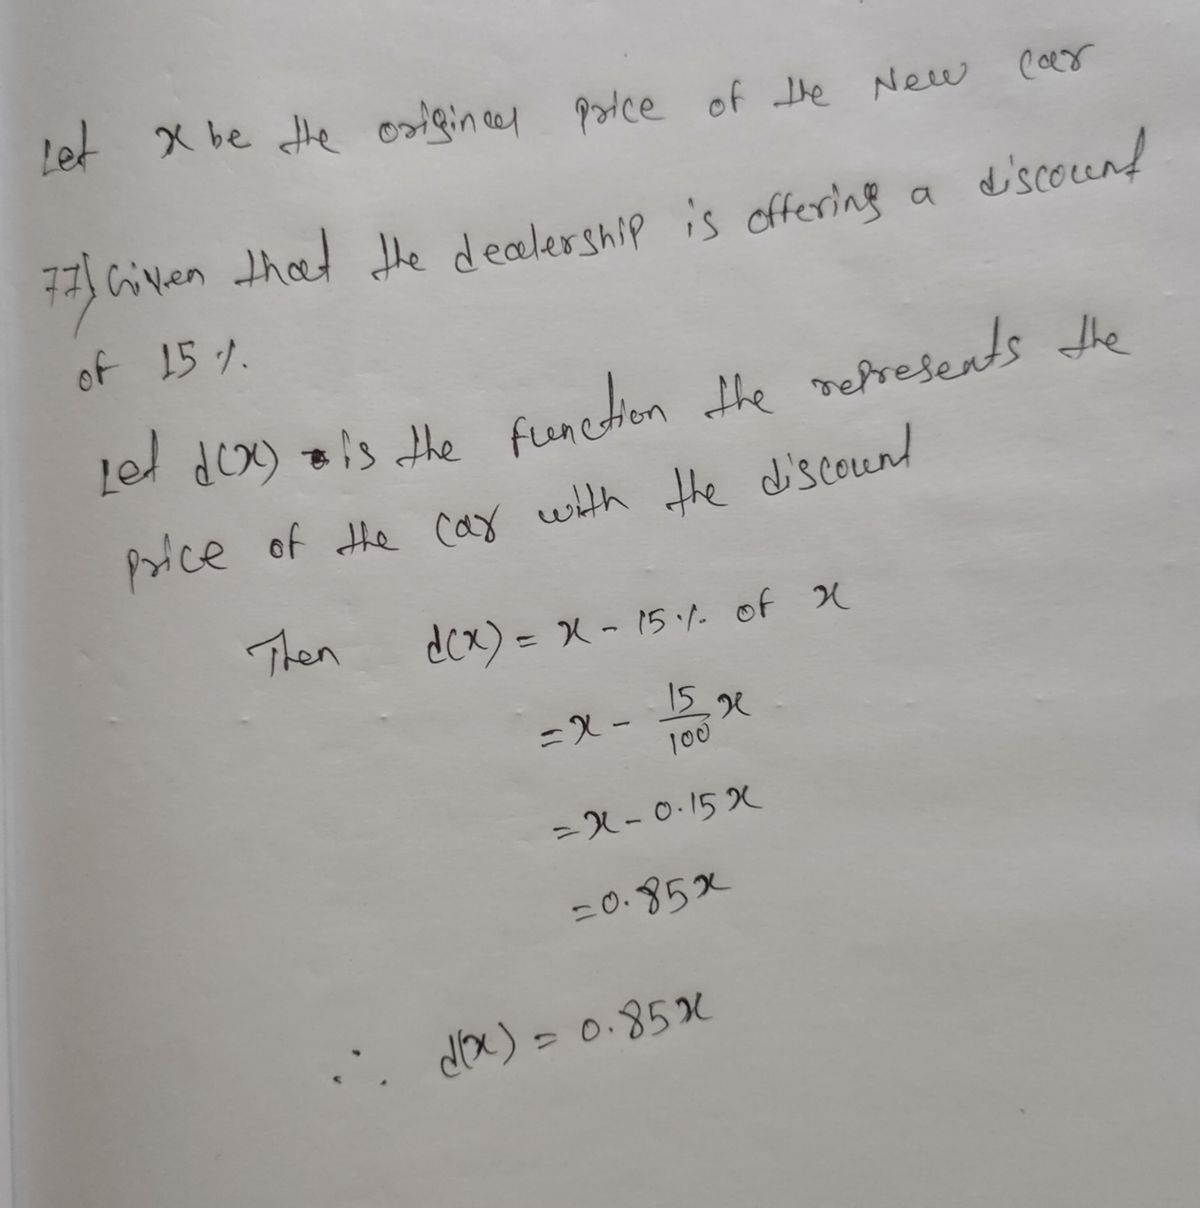 Let x be the original price of the New car
77) Given that the dealership is offering a discount
of 15 %.
Let d(x) is the function the represents the
price of the car with the discount
Then d(x) = x - 15 % of x
= x - 15/100 x
= x - 0.15 x
= 0.85x
∴ d(x) = 0.85x